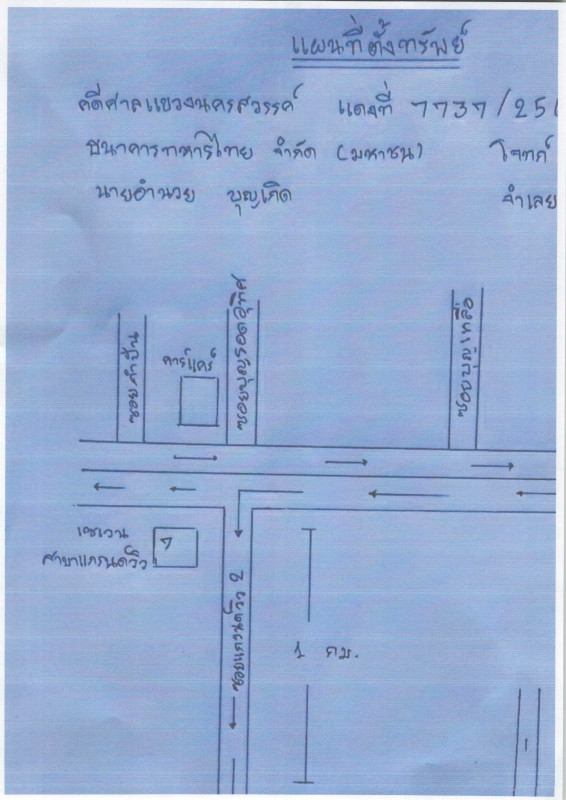 แผนที่ตั้งทรัพย์
คดีศาลแขวงนครสวรรค์ แดงที่ 7737/25
ธนาคารทหารไทย จำกัด (มหาชน) โจทก์
นายอำนวย บุญเกิด จำเลย
ซอยคำปัน
คาร์แคร์
ซอยบุญรอดอุทิศ
ซอยบุญเหลือ
เซเวน
สาขาแกรนด์วิว
7
ซอยแกรนด์วิว 2
1 กม.